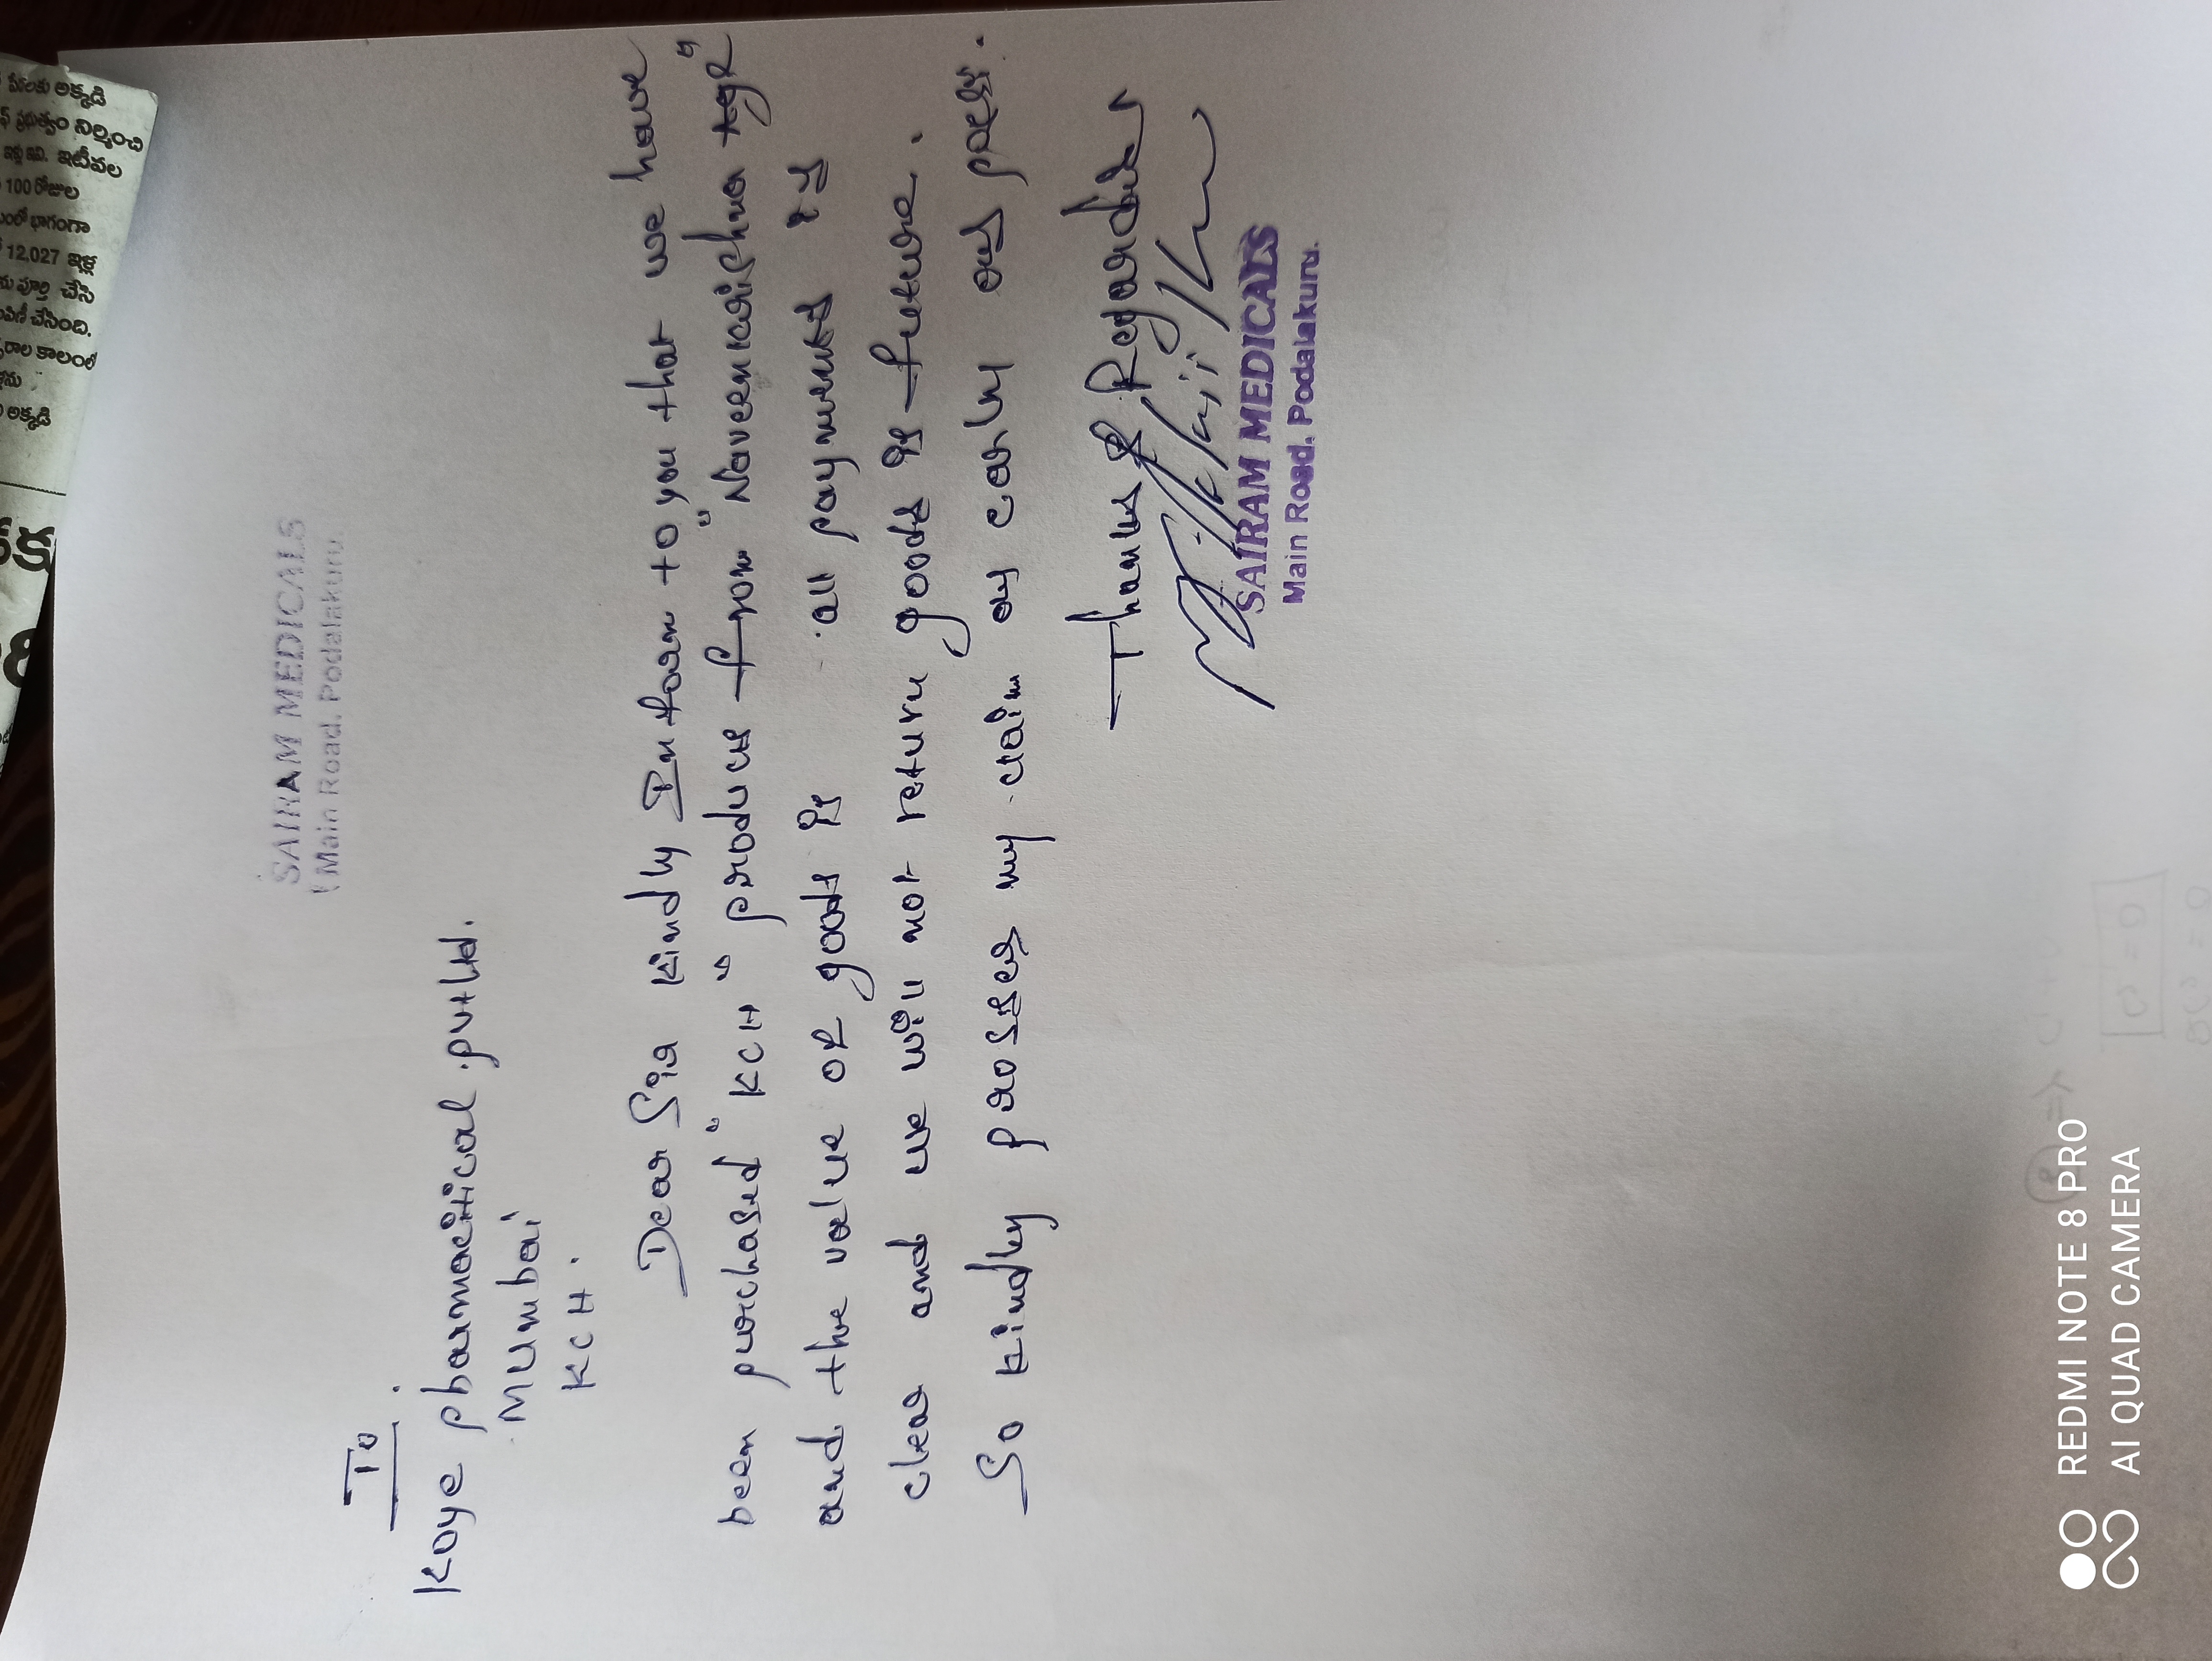 SAIRAM MEDICALS
Main Road. Podalakuru.
To
Koye pharmacitical pvt ltd.
Mumbai
KCH.
Dear Sir Kindly Inform to you that we have
been purchased "KCH" products from "Naveenkrishna
and the value of goods is all payments is
clear and we will not return goods is future.
So kindly prosses my claim as early as
Thanks & Regards
SAIRAM MEDICALS
Main Road. Podalakuru.
అక్కడి
నిర్మించి
ఇటీవల
100 రోజుల
భాగంగా
12,027 ఇళ్ల
పూర్తి చేసి
చేసింది.
కాలంలో
అక్కడి
REDMI NOTE 8 PRO
AI QUAD CAMERA